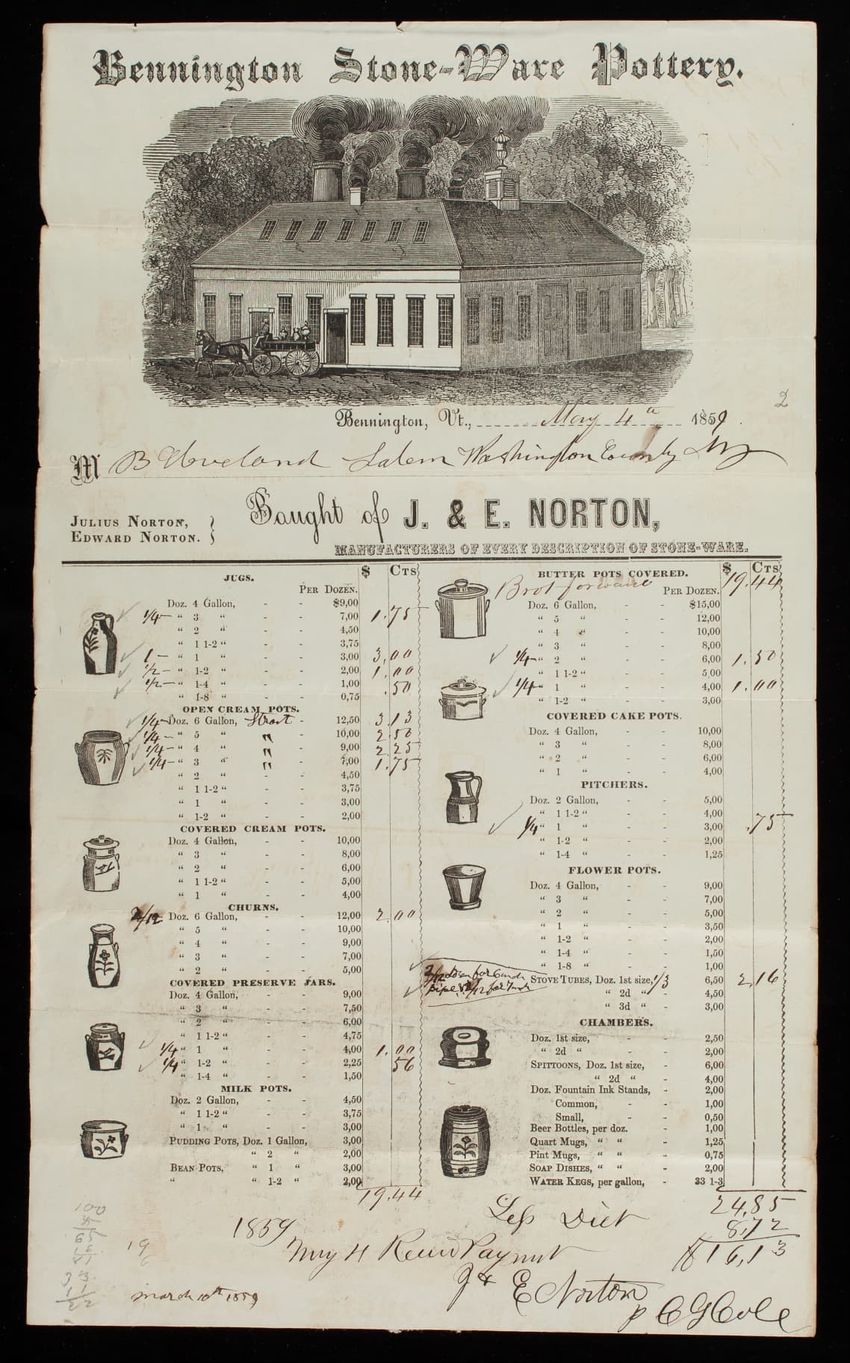 Bennington Stone-Ware Pottery.
Bennington, Vt., May 4th 1859
2
M B Cleveland Salem Washington County NY
Julius Norton,
Edward Norton.
Bought of J. & E. NORTON,
MANUFACTURERS OF EVERY DESCRIPTION OF STONE-WARE.
$ Cts
JUGS.
PER DOZEN.
Doz. 4 Gallon, - - $9,00
1/4 " 3 " - - 7,00 1.75
" 2 " - - 4,50
" 1 1-2 " - - 3,75
1 " 1 " - - 3,00 3,00
1/2 " 1-2 " - - 2,00 1.00
1/2 " 1-4 " - - 1,00 .50
" 1-8 " - - 0,75
OPEN CREAM POTS.
1/4 Doz. 6 Gallon, - 12,50 3.13
1/4 " 5 " " - 10,00 2.50
1/4 " 4 " " - 9,00 2.25
1/4 " 3 " " - 7,00 1.75
" 2 " - - 4,50
" 1 1-2 " - - 3,75
" 1 " - - 3,00
" 1-2 " - - 2,00
COVERED CREAM POTS.
Doz. 4 Gallon, - - 10,00
" 3 " - - 8,00
" 2 " - - 6,00
" 1 1-2 " - - 5,00
" 1 " - - 4,00
CHURNS.
2/12 Doz. 6 Gallon, - - 12,00 2.00
" 5 " - - 10,00
" 4 " - - 9,00
" 3 " - - 7,00
" 2 " - - 5,00
COVERED PRESERVE JARS.
Doz. 4 Gallon, - - 9,00
" 3 " - - 7,50
" 2 " - - 6,00
" 1 1-2 " - - 4,75
1/4 " 1 " - - 4,00 1.00
1/4 " 1-2 " - - 2,25 56
" 1-4 " - - 1,50
MILK POTS.
Doz. 2 Gallon, - - 4,50
" 1 1-2 " - - 3,75
" 1 " - - 3,00
PUDDING POTS, Doz. 1 Gallon, 3,00
" 2 " 2,00
BEAN POTS, " 1 " 3,00
" " 1-2 " 2,00
19.44
$ Cts
BUTTER POTS COVERED.
Brot forward 19.44
PER DOZEN.
Doz. 6 Gallon, - - $15,00
" 5 " - - 12,00
" 4 " - - 10,00
" 3 " - - 8,00
1/4 " 2 " - - 6,00 1.50
" 1 1-2 " - - 5 00
1/4 " 1 " - - 4,00 1.00
" 1-2 " - - 3,00
COVERED CAKE POTS.
Doz. 4 Gallon, - - 10,00
" 3 " - - 8,00
" 2 " - - 6,00
" 1 " - - 4,00
PITCHERS.
Doz. 2 Gallon, - - 5,00
" 1 1-2 " - - 4,00
1/4 " 1 " - - 3,00 .75
" 1-2 " - - 2,00
" 1-4 " - - 1,25
FLOWER POTS.
Doz. 4 Gallon, - - 9,00
" 3 " - - 7,00
" 2 " - - 5,00
" 1 " - - 3,50
" 1-2 " - - 2,00
" 1-4 " - - 1,50
" 1-8 " - - 1,00
STOVE TUBES, Doz. 1st size, 1/3 6,50 2,16
" 2d " - 4,50
" 3d " - 3,00
CHAMBERS.
Doz. 1st size, - - 2,50
" 2d " - - 2,00
SPITTOONS, Doz. 1st size, - 6,00
" 2d " 4,00
Doz. Fountain Ink Stands, - 2,00
Common, - 1,00
Small, - 0,50
Beer Bottles, per doz. - 1,00
Quart Mugs, " " - 1,25
Pint Mugs, " " - 0,75
SOAP DISHES, " " - 2,00
WATER KEGS, per gallon, - 33 1-3
24.85
Less Disct 8.72
$16,13
1859
May 4 Recd Paymnt
J & E Norton
p C G Cole
march 10th 1859